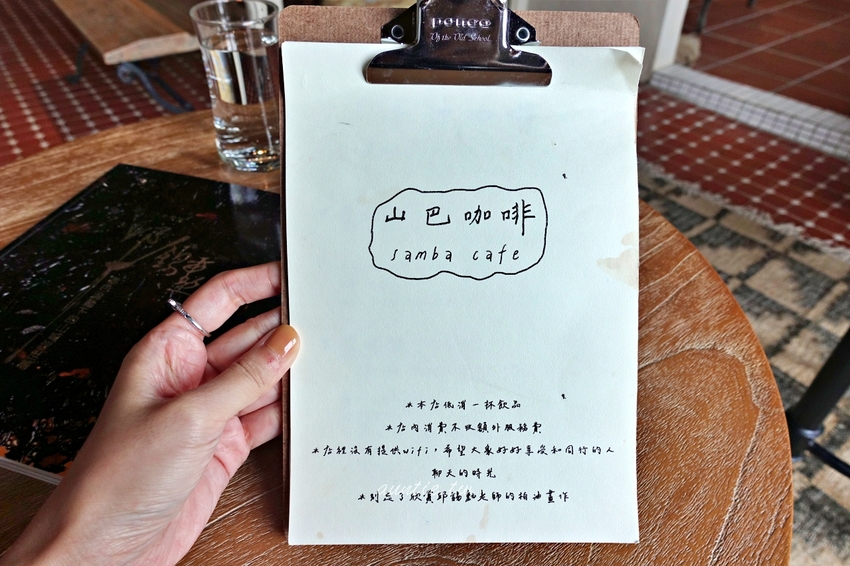 Up the Old School.
山巴咖啡
samba cafe
*本店低消一杯飲品
*店內消費不收額外服務費
*店裡沒有提供wifi，希望大家好好享受和同行的人
聊天的時光
*別忘了欣賞邱錫勳老師的柏油畫作